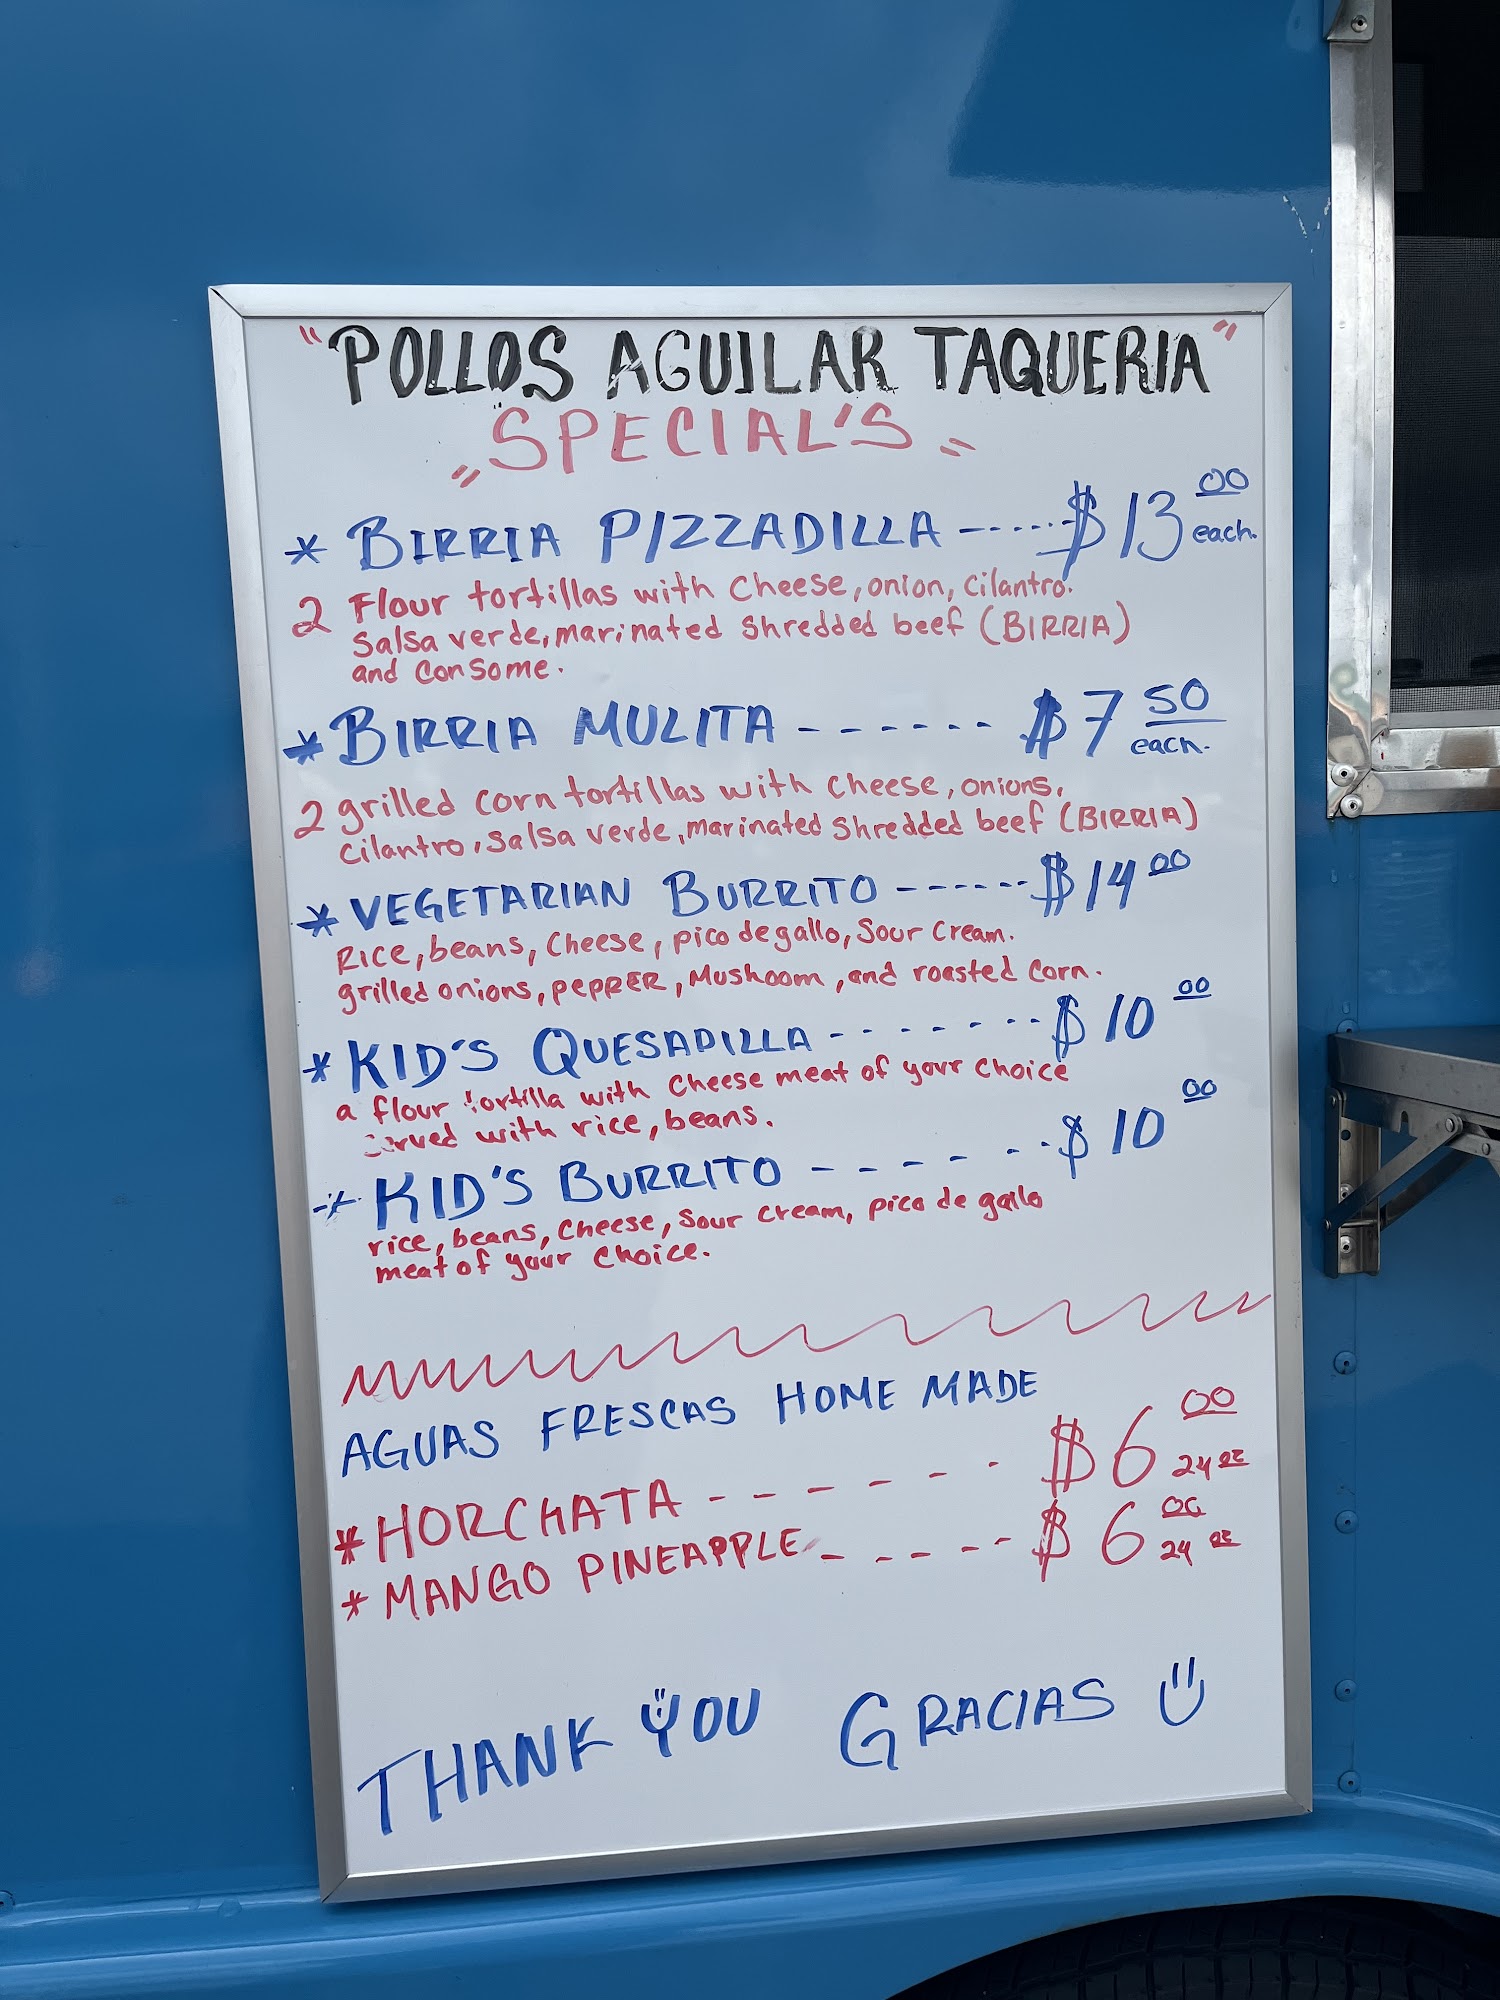 "POLLOS AGUILAR TAQUERIA"
"SPECIAL'S"
* BIRRIA PIZZADILLA ------ $13 00 each.
2 Flour tortillas with cheese, onion, cilantro.
salsa verde, marinated shredded beef (BIRRIA)
and consome.
* BIRRIA MULITA ------ $7 50 each.
2 grilled corn tortillas with cheese, onions,
cilantro, salsa verde, marinated shredded beef (BIRRIA)
* VEGETARIAN BURRITO ------ $14 00
Rice, beans, cheese, pico de gallo, sour cream.
grilled onions, pepper, Mushoom, and roasted corn.
* KID'S QUESADILLA ------- $10 00
a flour tortilla with cheese meat of your choice
served with rice, beans.
* KID'S BURRITO ------- $10 00
rice, beans, cheese, sour cream, pico de gallo
meat of your choice.
AGUAS FRESCAS HOME MADE
* HORCHATA ------- $6 00 24 oz
* MANGO PINEAPPLE ----- $6 00 24 oz
THANK YOU GRACIAS